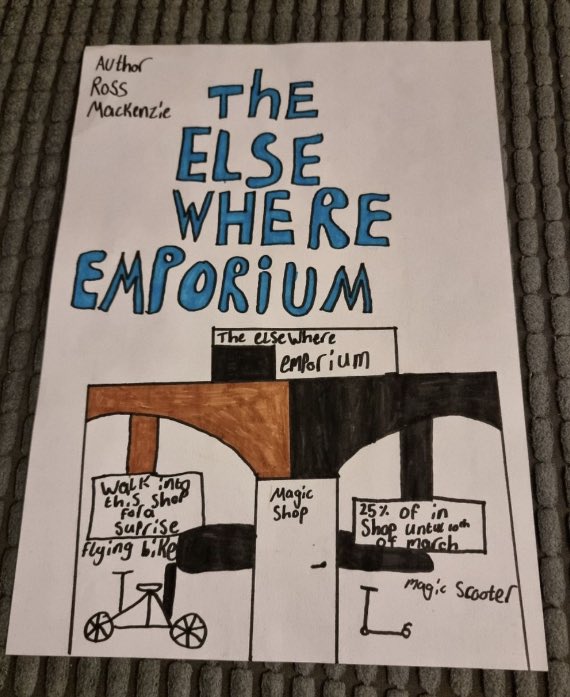 Author
Ross
Mackenzie
ThE
ELSE
WHERE
EMPORiUM
The elseWhere
emporium
Walk into
this shop
for a
suprise
flying bike
Magic
Shop
25% of in
Shop until 10th
of march
Magic Scooter